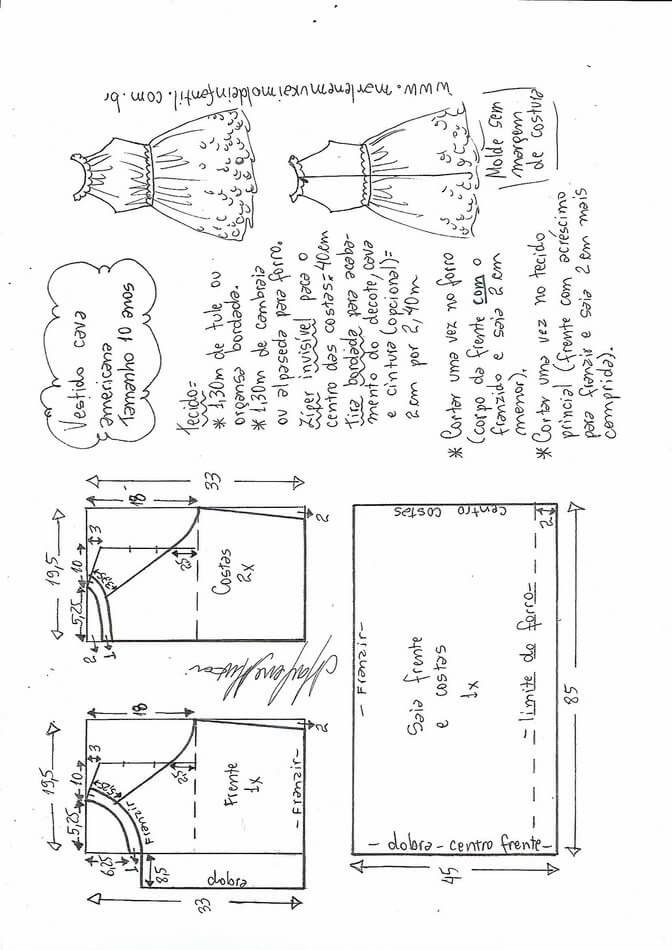 www.marlenemukaimoldeinfantil.com.br
Molde sem
margem
de costura
Vestido cava
americana
Tamanho 10 anos
Tecido=
* 1,30m de tule ou
organsa bordada.
* 1,30m de cambraia
ou alpaseda para forro.
Zíper invisível para o
centro das costas=40cm
Tira bordada para acaba-
mento do decote, cava
e cintura (opcional)=
2 cm por 2,40m
* Cortar uma vez no forro
(corpo da frente com o
franzido e saia 2 cm
menor).
* Cortar uma vez no tecido
princial (frente com acréscimo
para franzir e saia 2 cm mais
comprida).
19,5
5,25
10
3
18
33
2
1
25
Costas
2x
2
19,5
5,25
10
3
18
6,25
1
8,5
Franzir
25
Frente
1x
- Franzir -
2
dobra
33
- Franzir -
Centro Costas
Saia frente
e costas
1x
- limite do forro -
2
- dobra - centro frente -
85
45